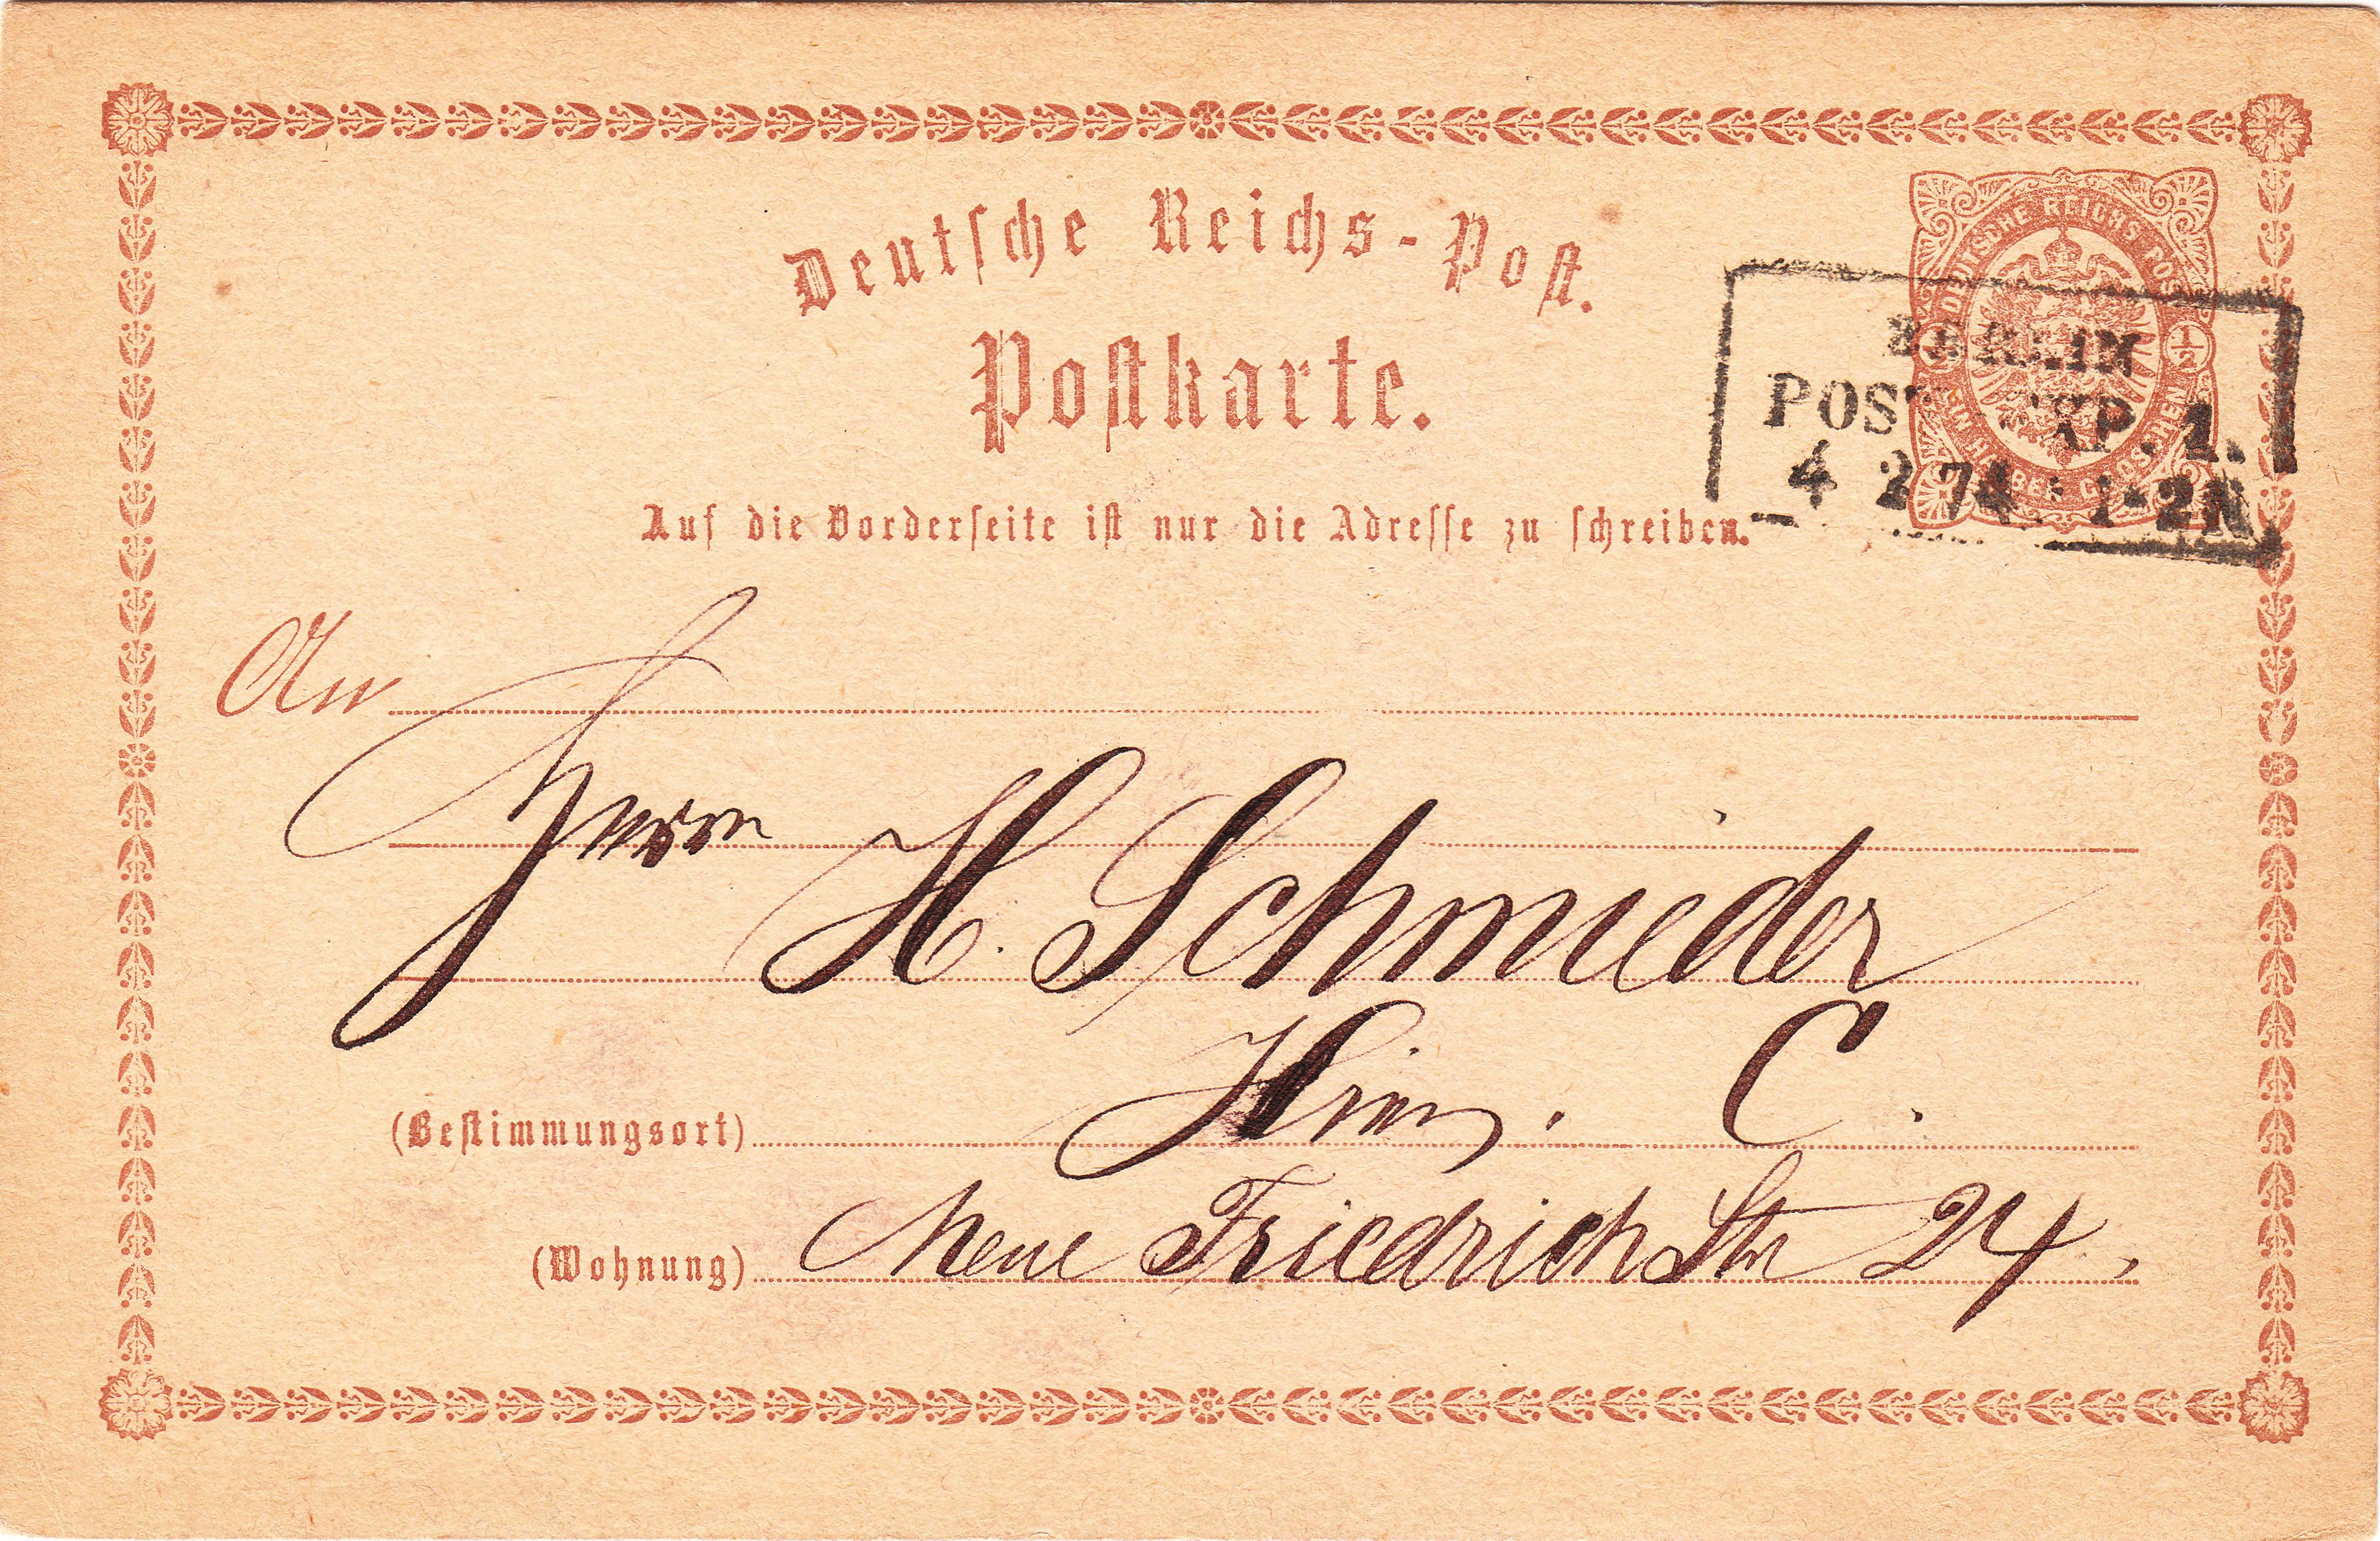 Deutsche Reichs-Post.
Postkarte.
DEUTSCHE REICHS POST
EIN HALBER GROSCHEN
1/2
BERLIN
POST EXP. 1.
4 2 74 1-2N
Auf die Vorderseite ist nur die Adresse zu schreiben.
An
Herrn H. Schmieder
Hier. C.
(Bestimmungsort)
(Wohnung) Neue Friedrich Str 24.